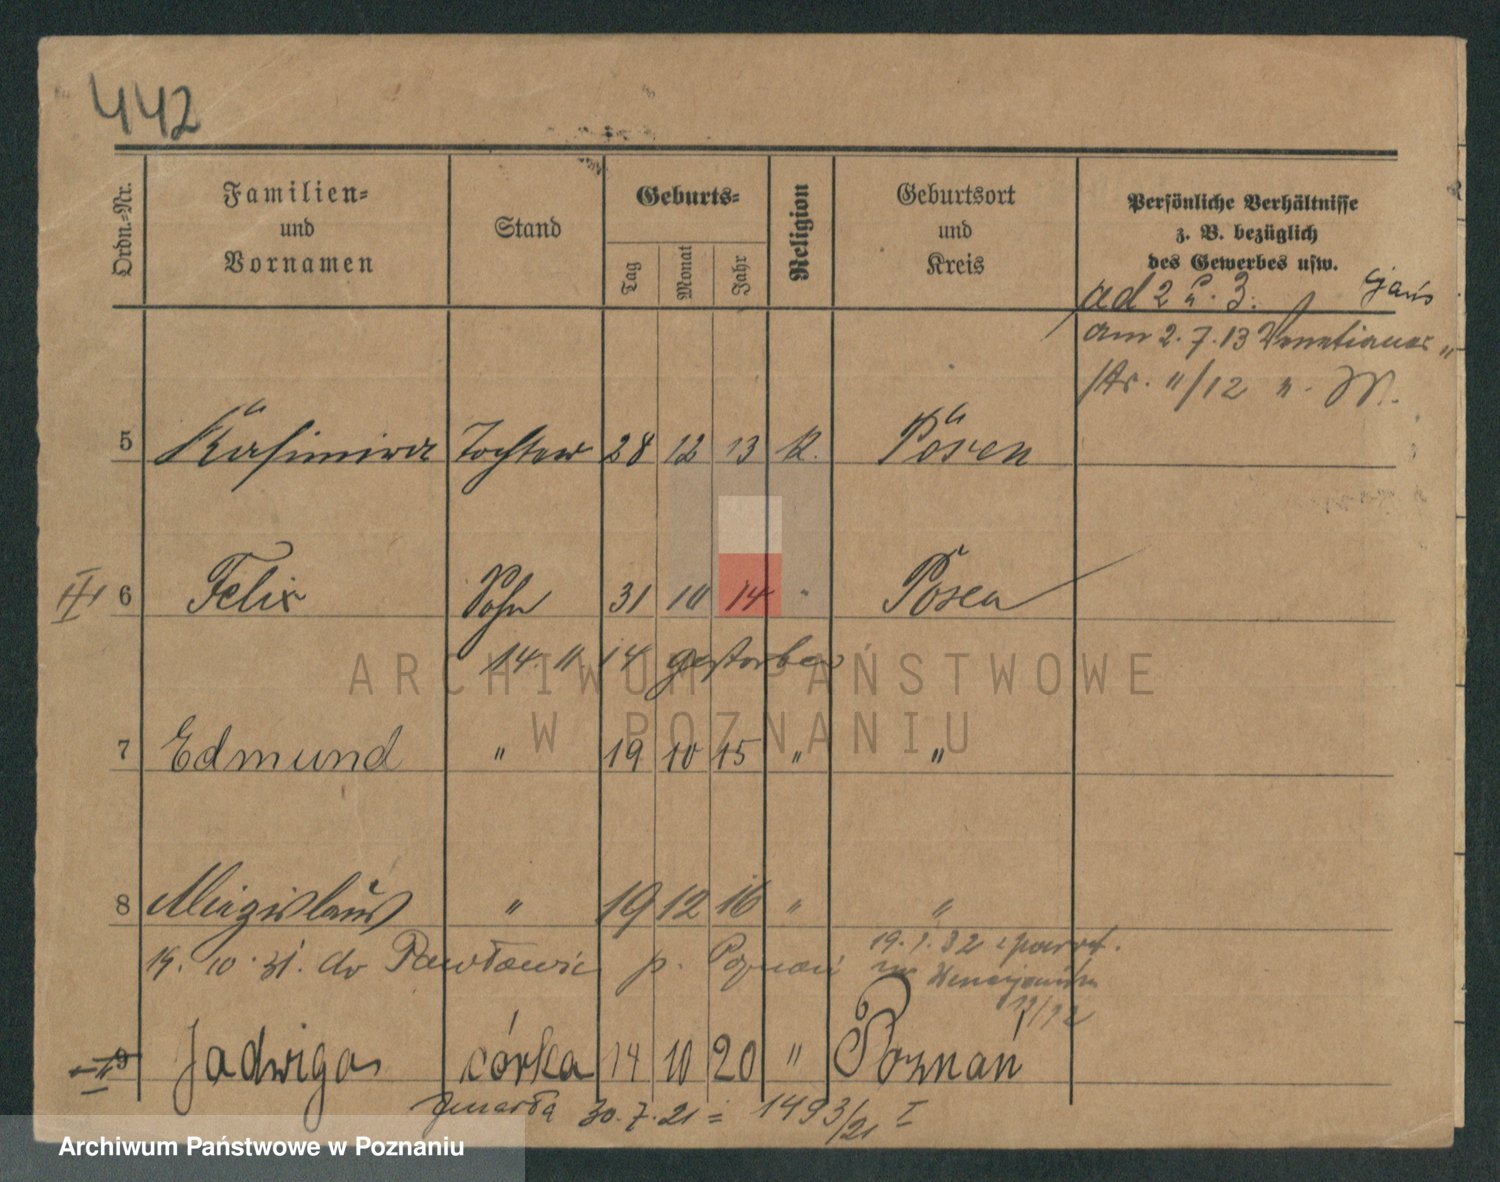 442
Ordn.-Nr.
Familien-
und
Vornamen
Stand
Geburts-
Tag
Monat
Jahr
Religion
Geburtsort
und
Kreis
Persönliche Verhältnisse
z. B. bezüglich
des Gewerbes usw.
ad 2 u. 3.
am 2. 7. 13 Venetianer
str. 11/12
5 Kasimira Tochter 28 12 13 k. Posen
III 6 Felix Sohn 31 10 14 " Posen
14. 11 14 gestorben
7 Edmund " 19 10 15 " "
8 Miezislaus " 19 12 16 " "
19. 10. 31. do Pawłowic p. Poznań
19. 1. 32 powrót.
9 Jadwiga córka 14 10 20 " Poznań
zmarła 30. 7. 21 = 1493/21 I
ARCHIWUM PAŃSTWOWE
W POZNANIU
Archiwum Państwowe w Poznaniu